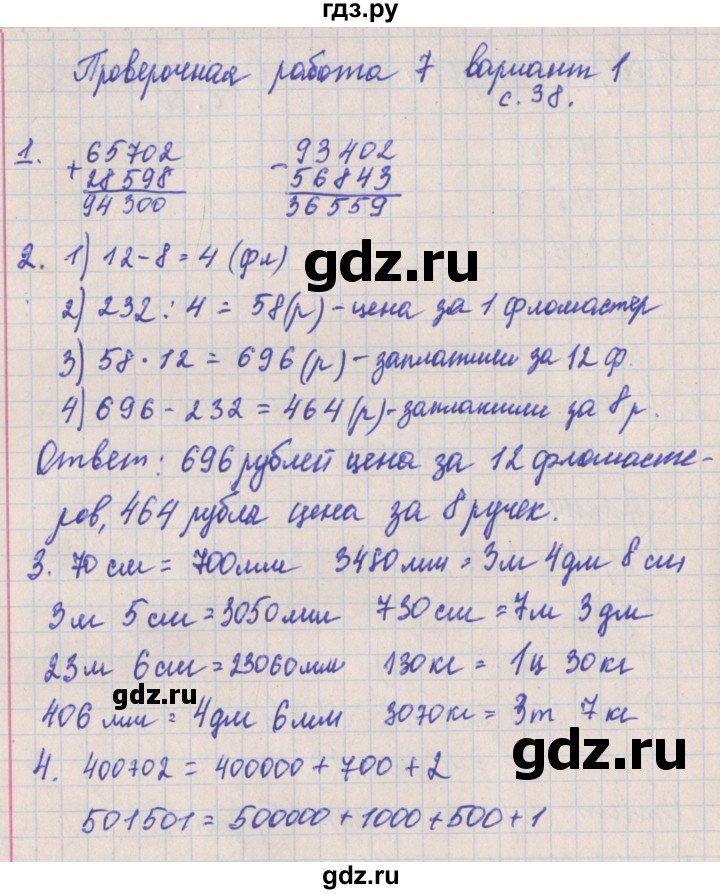 гдз.ру
Проверочная работа 7 вариант 1
с. 38.
1. + 65702 - 93402
28598 56843
94300 36559
2. 1) 12-8=4 (фл)
гдз.ру
2) 232:4=58(р)-цена за 1 фломастер
3) 58·12=696(р)-заплатили за 12 ф.
4) 696-232=464(р)-заплатили за 8 р.
Ответ: 696 рублей цена за 12 фломасте-
ров, 464 рубла цена за 8 ручек.
3. 70 см = 700 мм 3480 мм = 3 м 4 дм 8 см
3 м 5 см = 3050 мм 730 см = 7 м 3 дм
23 м 6 см = 23060 мм 130 кг = 1 ц 30 кг
гдз.ру
406 мм = 4 дм 6 мм 3070 кг = 3 т 7 кг
гдз.ру
4. 400702 = 400000 + 700 + 2
501501 = 500000 + 1000 + 500 + 1